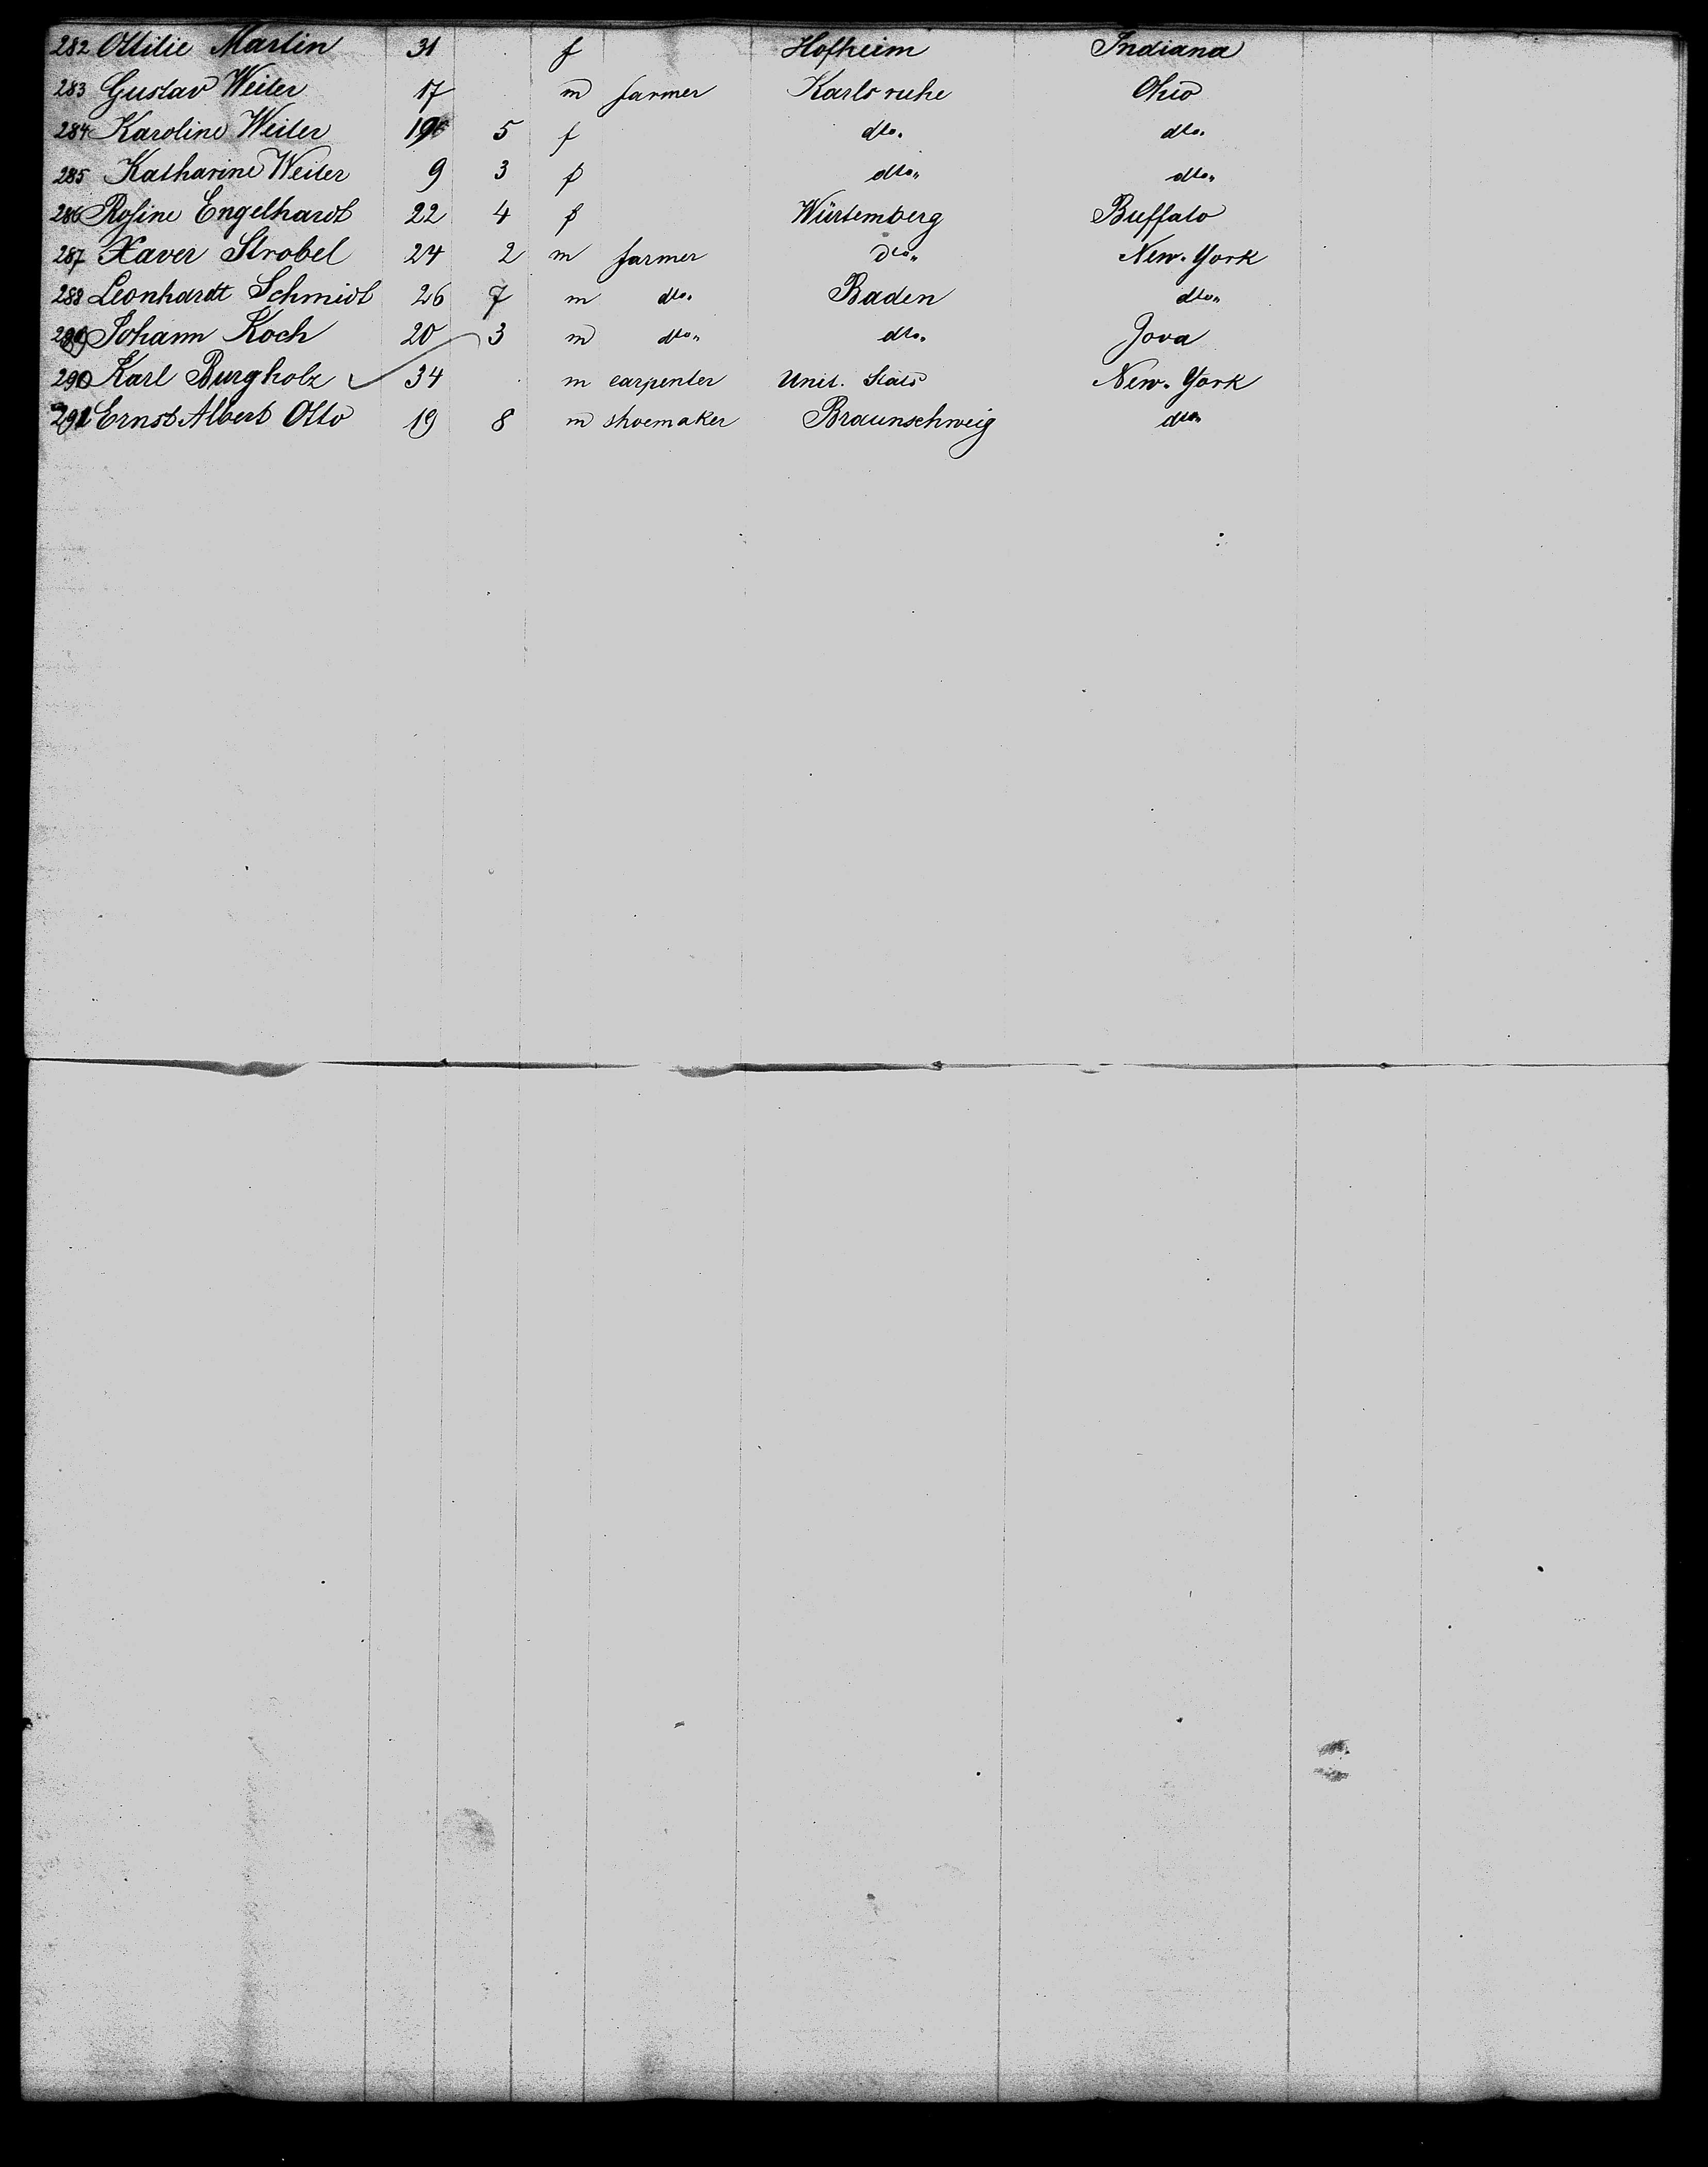 282 Ottilie Martin 31 f Hofheim Indiana
283 Gustav Weiler 17 m farmer Karlsruhe Ohio
284 Karoline Weiler 19 5 f dto. dto.
285 Katharine Weiler 9 3 f dto. dto.
286 Rosine Engelhardt 22 4 f Würtemberg Buffalo
287 Xaver Strobel 24 2 m farmer dto. New-York
288 Leonhardt Schmidt 26 7 m dto. Baden dto.
289 Johann Koch 20 3 m dto. dto. Jova
290 Karl Burgholz 34 m carpenter Unit. Stats New-York
291 Ernst Albert Otto 19 8 m shoemaker Braunschweig dto.